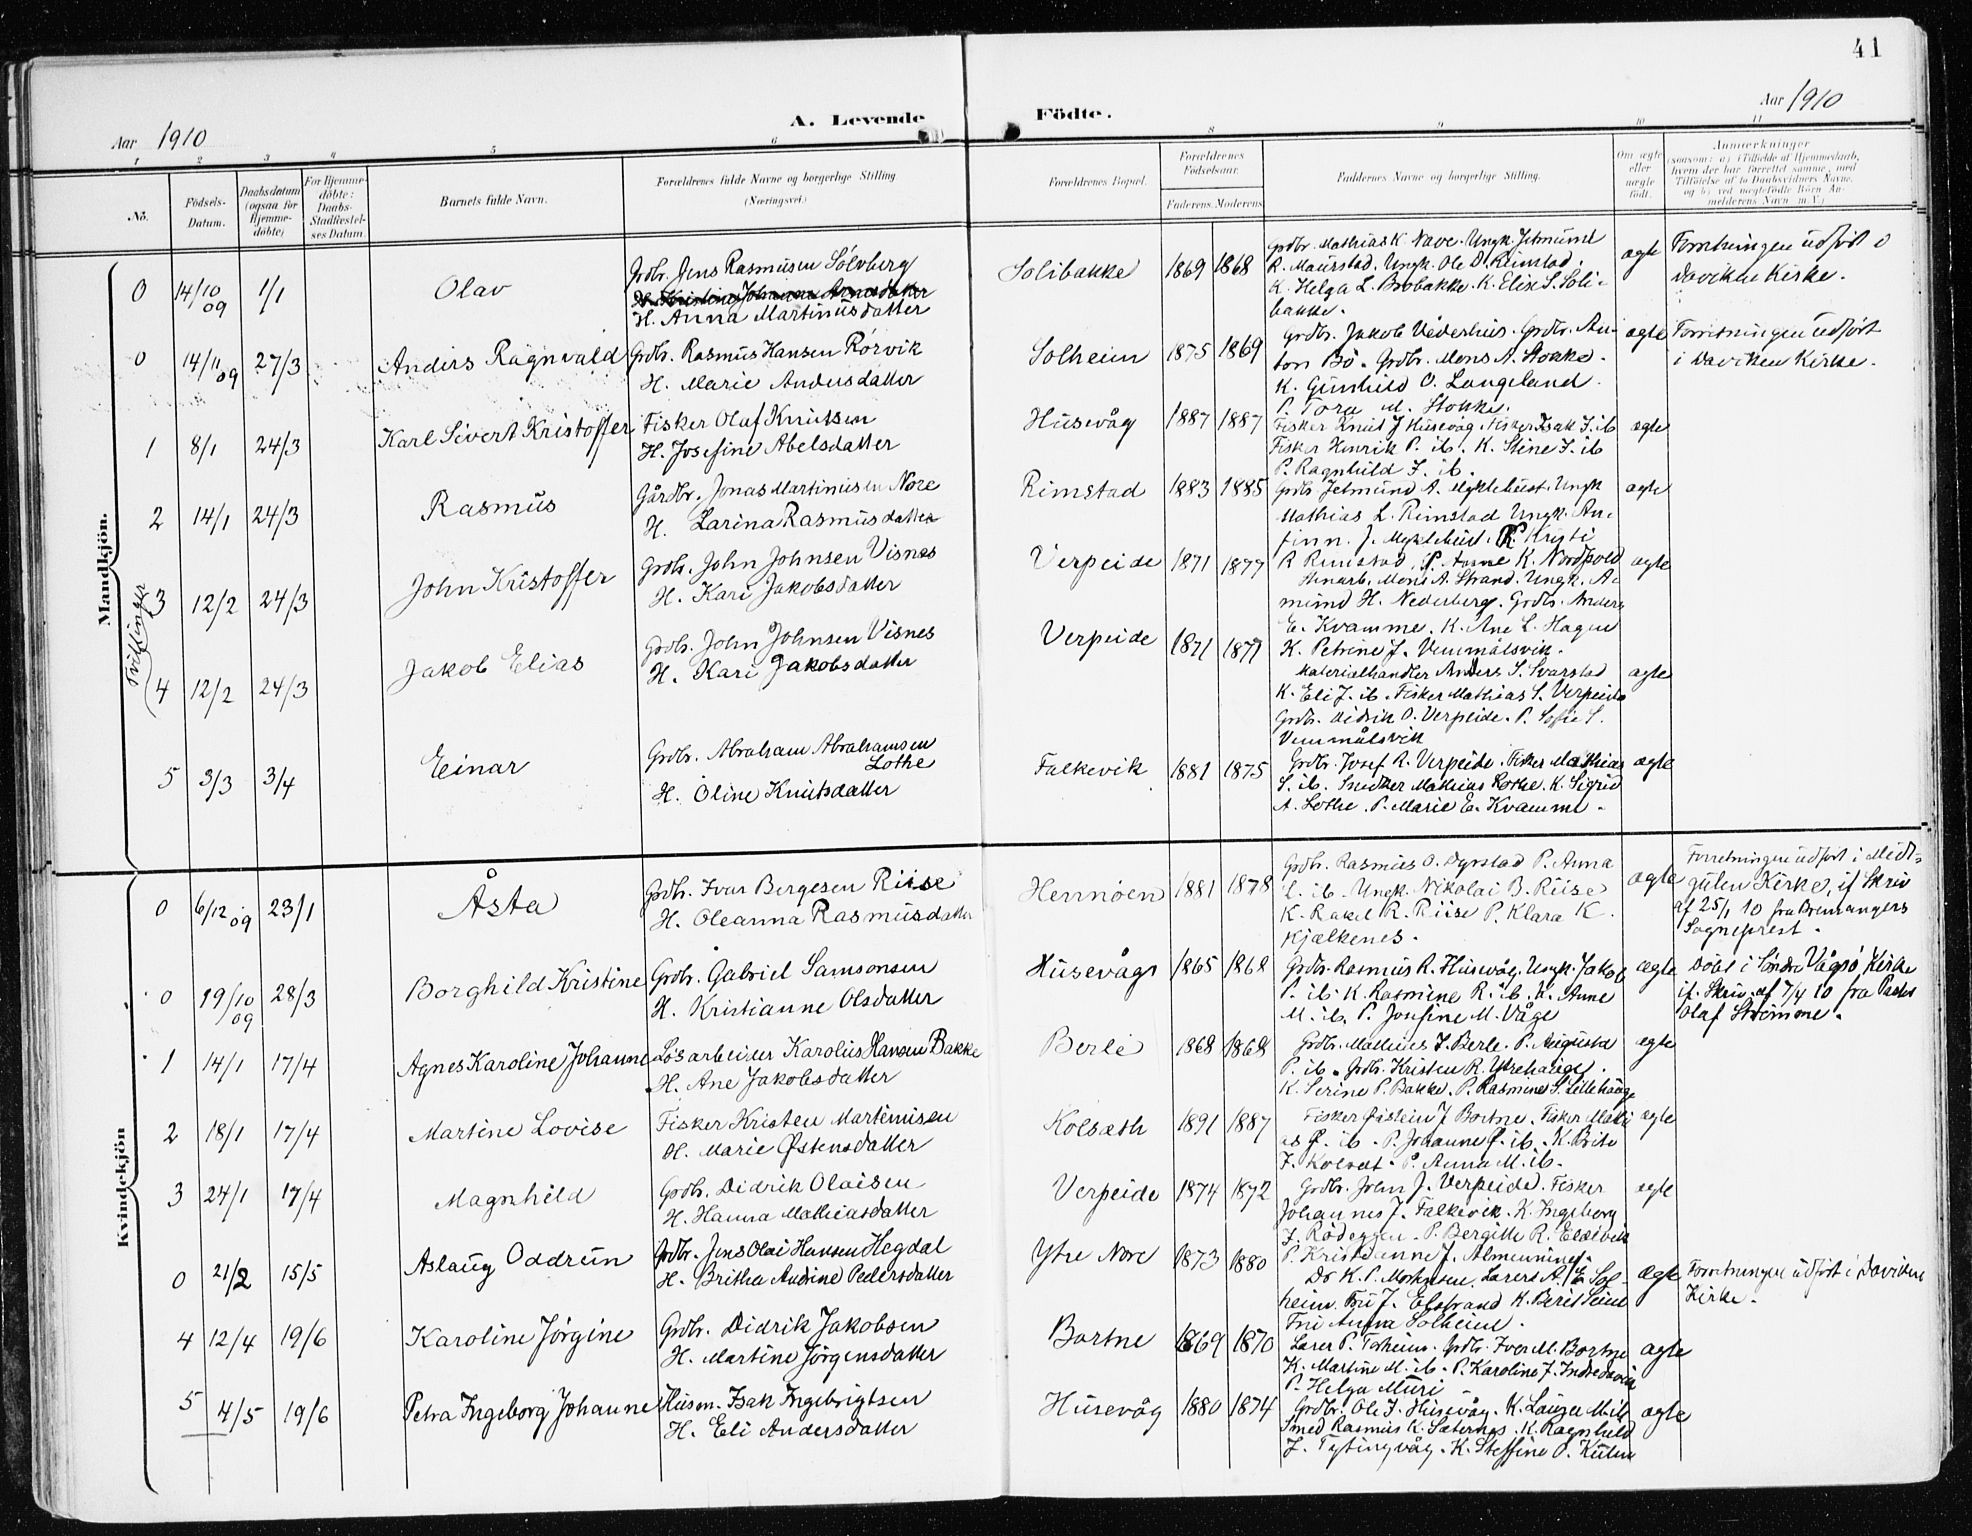 41
Aar 1910
A. Levende Födte.
Aar 1910
1 2 3 4 5 6 8 9 10 11
No.
Födsels-Datum.
Daabsdatum (ogsaa for Hjemme-döbte)
For Hjemme-döbte: Daabs-Stadfæstel-ses Datum.
Barnets fulde Navn.
Forældrenes fulde Navne og borgerlige Stilling. (Næringsvei.)
Forældrenes Bopæl.
Forældrenes Födselsaar.
Faderens. Moderens.
Faddernes Navne og borgerlige Stilling.
Om ægte eller uægte födt.
Anmærkninger
(saasom: a) i Tilfælde af Hjemmedaab, hvem der har forrettet samme, med Tilföielse af to Daabsvidners Navne, og b) ved uegtefödte Börn Anmelderens Navn m. V.)
Mandkjön.
0 14/10 09 1/1 Olav
Grdbr. Jens Rasmusen Sølvberg
H. Kristine Johanna Arnesdatter
H. Anna Martinusdatter
Solibakke 1869 1868
Grdbr. Mathias K. Nave. Ungk. Jetmund
R. Maurstad. Ungk. Ole D. Rimstad.
K. Helga L. Brobakke. K. Elise S. Soli-
bakke.
ægte
Forretningen udført i
Daviken Kirke.
0 14/11 09 27/3 Anders Ragnvald
Grdbr. Rasmus Hansen Rørvik
H. Marie Andersdatter
Solheim 1875 1869
Grdbr. Jakob Vederhus. Grdbr. An-
ton Bø. Grdbr. Mons A. Stokke.
K. Gunhild O. Langeland.
P. Tora M. Stokke.
ægte
Forretningen udført
i Daviken Kirke.
1 8/1 24/3 Karl Sivert Kristoffer
Fisker Olaf Knutsen
H. Josefine Abelsdatter
Husevåg 1887 1887
Fisker Knut J. Husevåg. Fisker Isak J. ib
Fisker Henrik P. ib. K. Stine J. ib
P. Ragnhild J. ib.
ægte
2 14/1 24/3 Rasmus
Gårdbr. Jonas Martinusen Nore
H. Larina Rasmusdatter
Rimstad 1883 1885
Grdbr Jetmund A. Myklebust. Ungk
Mathias L. Rimstad Ungk. An-
finn. J. Myklebust. P. Kristi
R Rimstad. P. Anne K. Nordpold
ægte
Tvillinger
3 12/2 24/3 John Kristoffer
Grdbr. John Johnsen Visnes
H. Kari Jakobsdatter
Verpeide 1871 1877
Stenarb. Mons A. Strand. Ungk. A-
mund H. Nederberg. Grdbr. Anders
E. Kvamme. K. Ane L. Hagen
K. Petrine J. Vemmålsvik.
ægte
4 12/2 24/3 Jakob Elias
Grdbr. John Johnsen Visnes
H. Kari Jakobsdatter
Verpeide 1871 1877
Materialhandler Anders S. Svarstad
K. Eli J. ib. Fisker Mathias S. Verpeide
Grdbr. Didrik O. Verpeide. P. Sofie S.
Vemmålsvik
ægte
5 3/3 3/4 Einar
Grdbr. Abraham Abrahamsen
Lothe
H. Oline Knutsdatter
Falkevik 1881 1875
Grdbr. Josef R. Verpeide. Fisker Mathias
S. ib. Snedker Mathias Lothe. K. Sigrid
A. Lothe. P. Marie E. Kvamme.
ægte
Kvindekjön
0 6/12 09 23/1 Åsta
Grdbr. Ivar Bergesen Riise
H. Oleanna Rasmusdatter
Hennøen 1881 1878
Grdbr. Rasmus O. Dyrstad P. Anna
L. ib. Ungk. Nikolai B. Riise
K. Rakel R. Riise P. Klara K.
Kjælkenes.
ægte
Forretningen udført i Midt-
gulen Kirke, if. Skriv
af 25/1 10 fra Bremangers
Sogneprest.
0 19/10 09 28/3 Borghild Kristine
Grdbr. Gabriel Samsonsen
H. Kristianne Olsdatter
Husevåg 1865 1868
Grdbr. Rasmus R. Husevåg. Ungk. Jakob
P. ib. K. Rasmine R. ib. K. Anne
M. ib. P. Josefine M. Våge
ægte
Døbt i Søndre Vågsø Kirke
if. Skriv. af 7/4 10 fra Pastor
Olaf Strømme.
1 14/1 17/4 Agnes Karoline Johanne
Løsarbeider Karolius Hansen Bakke
H. Ane Jakobsdatter
Berle 1868 1868
Grdbr. Mathias J. Berle. P. Augusta
P. ib. Grdbr. Kristen R. Ytrehauge.
K. Serine P. Bakke. P. Rasmine S. Lillehauge
ægte
2 18/1 17/4 Martine Lovise
Fisker Kristen Martinusen
H. Marie Østensdatter
Kolsæth 1891 1887
Fisker Østein J Bortne. Fisker Mathi
as Ø. ib. P. Johanne Ø. ib. K. Brite
J. Kolset. P. Anna M. ib.
ægte
3 24/1 17/4 Magnhild
Grdbr. Didrik Olaisen
H. Hanna Mathiasdatter
Verpeide 1874 1872
Grdbr. John J. Verpeide. Fisker
Johannes J. Falkevik. K. Ingeborg
J. Rødeggen. P. Bergitte R. Eldevik
P. Kristianne J. Almenning.
ægte
0 21/2 15/5 Aslaug Oddrun
Grdbr. Jens Olai Hansen Hegdal
H. Britha Andine Pedersdatter
Ytre Nore 1873 1880
Dr K. P. Mortensen. Lærer A. E Sol-
heim. Fru J. Elstrand K. Berit Seim
Fru Anna Solheim.
ægte
Forretningen udført i Daviken
Kirke.
4 12/4 19/6 Karoline Jørgine
Grdbr. Didrik Jakobsen
H. Martine Jørgensdatter
Bortne 1869 1870
Lærer P. Torheim. Grdbr. Iver M. Bortne
K. Martine M. ib. P. Karoline J. Indredavik
P. Helga Muri
ægte
5 4/5 19/6 Petra Ingeborg Johanne
Husm. Isak Ingebrigtsen
H. Eli Andersdatter
Husevåg 1880 1874
Grdbr. Ole J. Husevåg. K. Lauza M. ib
Smed Rasmus K. Sæternes. K. Ragnhild
J. Tytingvåg. K. Steffine P. Kulen
ægte